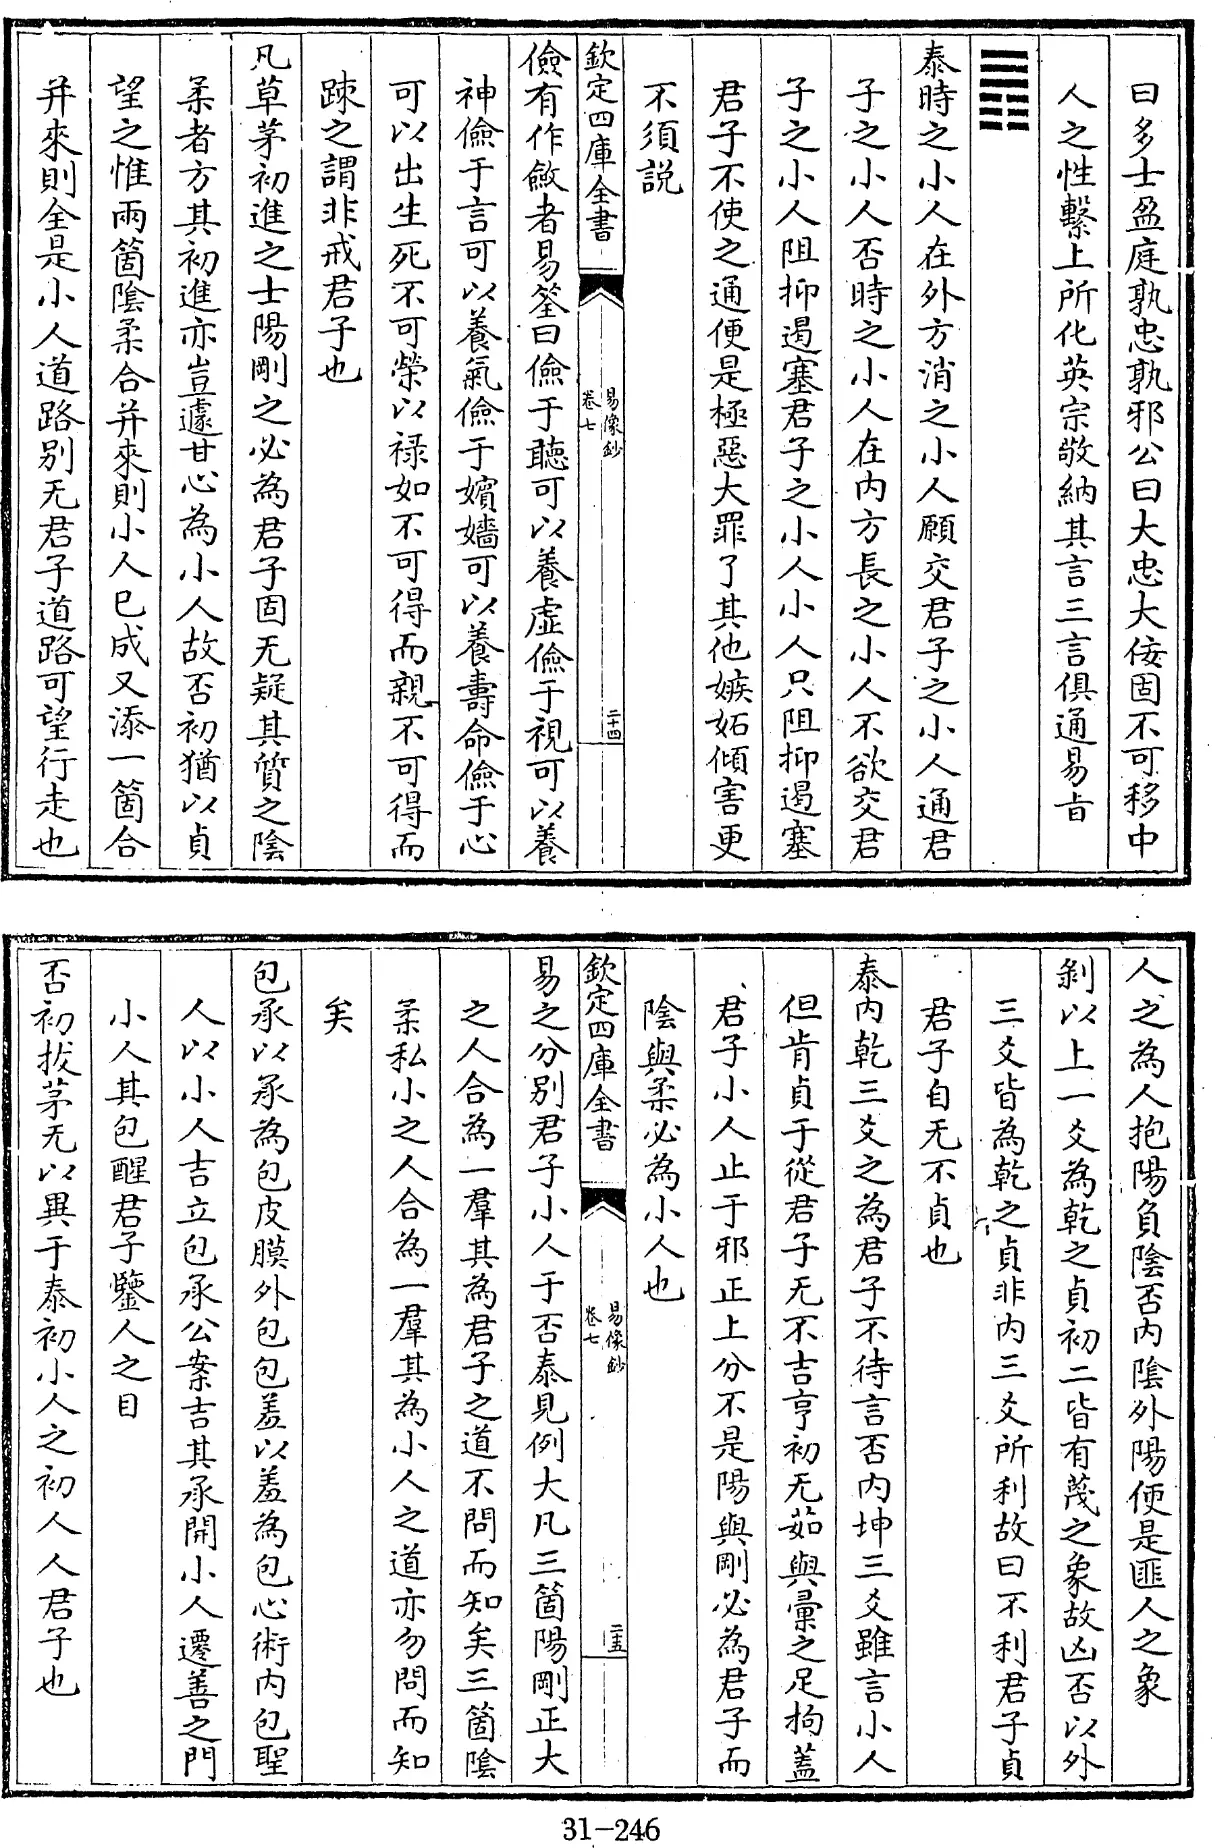 曰多士盈庭孰忠孰邪公曰大忠大佞固不可移中
人之性繫上所化英宗敬納其言三言俱通易㫖
泰時之小人在外方消之小人願交君子之小人通君
子之小人否時之小人在内方長之小人不欲交君
子之小人阻抑遏塞君子之小人小人只阻抑遏塞
君子不使之通便是極惡大罪了其他嫉妬傾害更
不須説
欽定四庫全書
易像鈔
卷七
二十四
儉有作斂者易筌曰儉于聽可以養虚儉于視可以養
神儉于言可以養氣儉于嬪嬙可以養壽命儉于心
可以出生死不可榮以禄如不可得而親不可得而
踈之謂非戒君子也
凡草茅初進之士陽剛之必為君子固无疑其質之陰
柔者方其初進亦豈遽甘心為小人故否初猶以貞
望之惟兩箇陰柔合并來則小人已成又添一箇合
并來則全是小人道路别无君子道路可望行走也
人之為人抱陽負陰否内陰外陽便是匪人之象
剝以上一爻為乾之貞初二皆有蔑之象故凶否以外
三爻皆為乾之貞非内三爻所利故曰不利君子貞
君子自无不貞也
泰内乾三爻之為君子不待言否内坤三爻雖言小人
但肯貞于從君子无不吉亨初无茹與彚之足拘蓋
君子小人止于邪正上分不是陽與剛必為君子而
陰與柔必為小人也
欽定四庫全書
易像鈔
卷七
二十五
易之分别君子小人于否泰見例大凡三箇陽剛正大
之人合為一羣其為君子之道不問而知矣三箇陰
柔私小之人合為一羣其為小人之道亦勿問而知
矣
包承以承為包皮膜外包包羞以羞為包心術内包聖
人以小人吉立包承公案吉其承開小人遷善之門
小人其包醒君子鑒人之目
否初拔茅无以異于泰初小人之初人人君子也
31-246